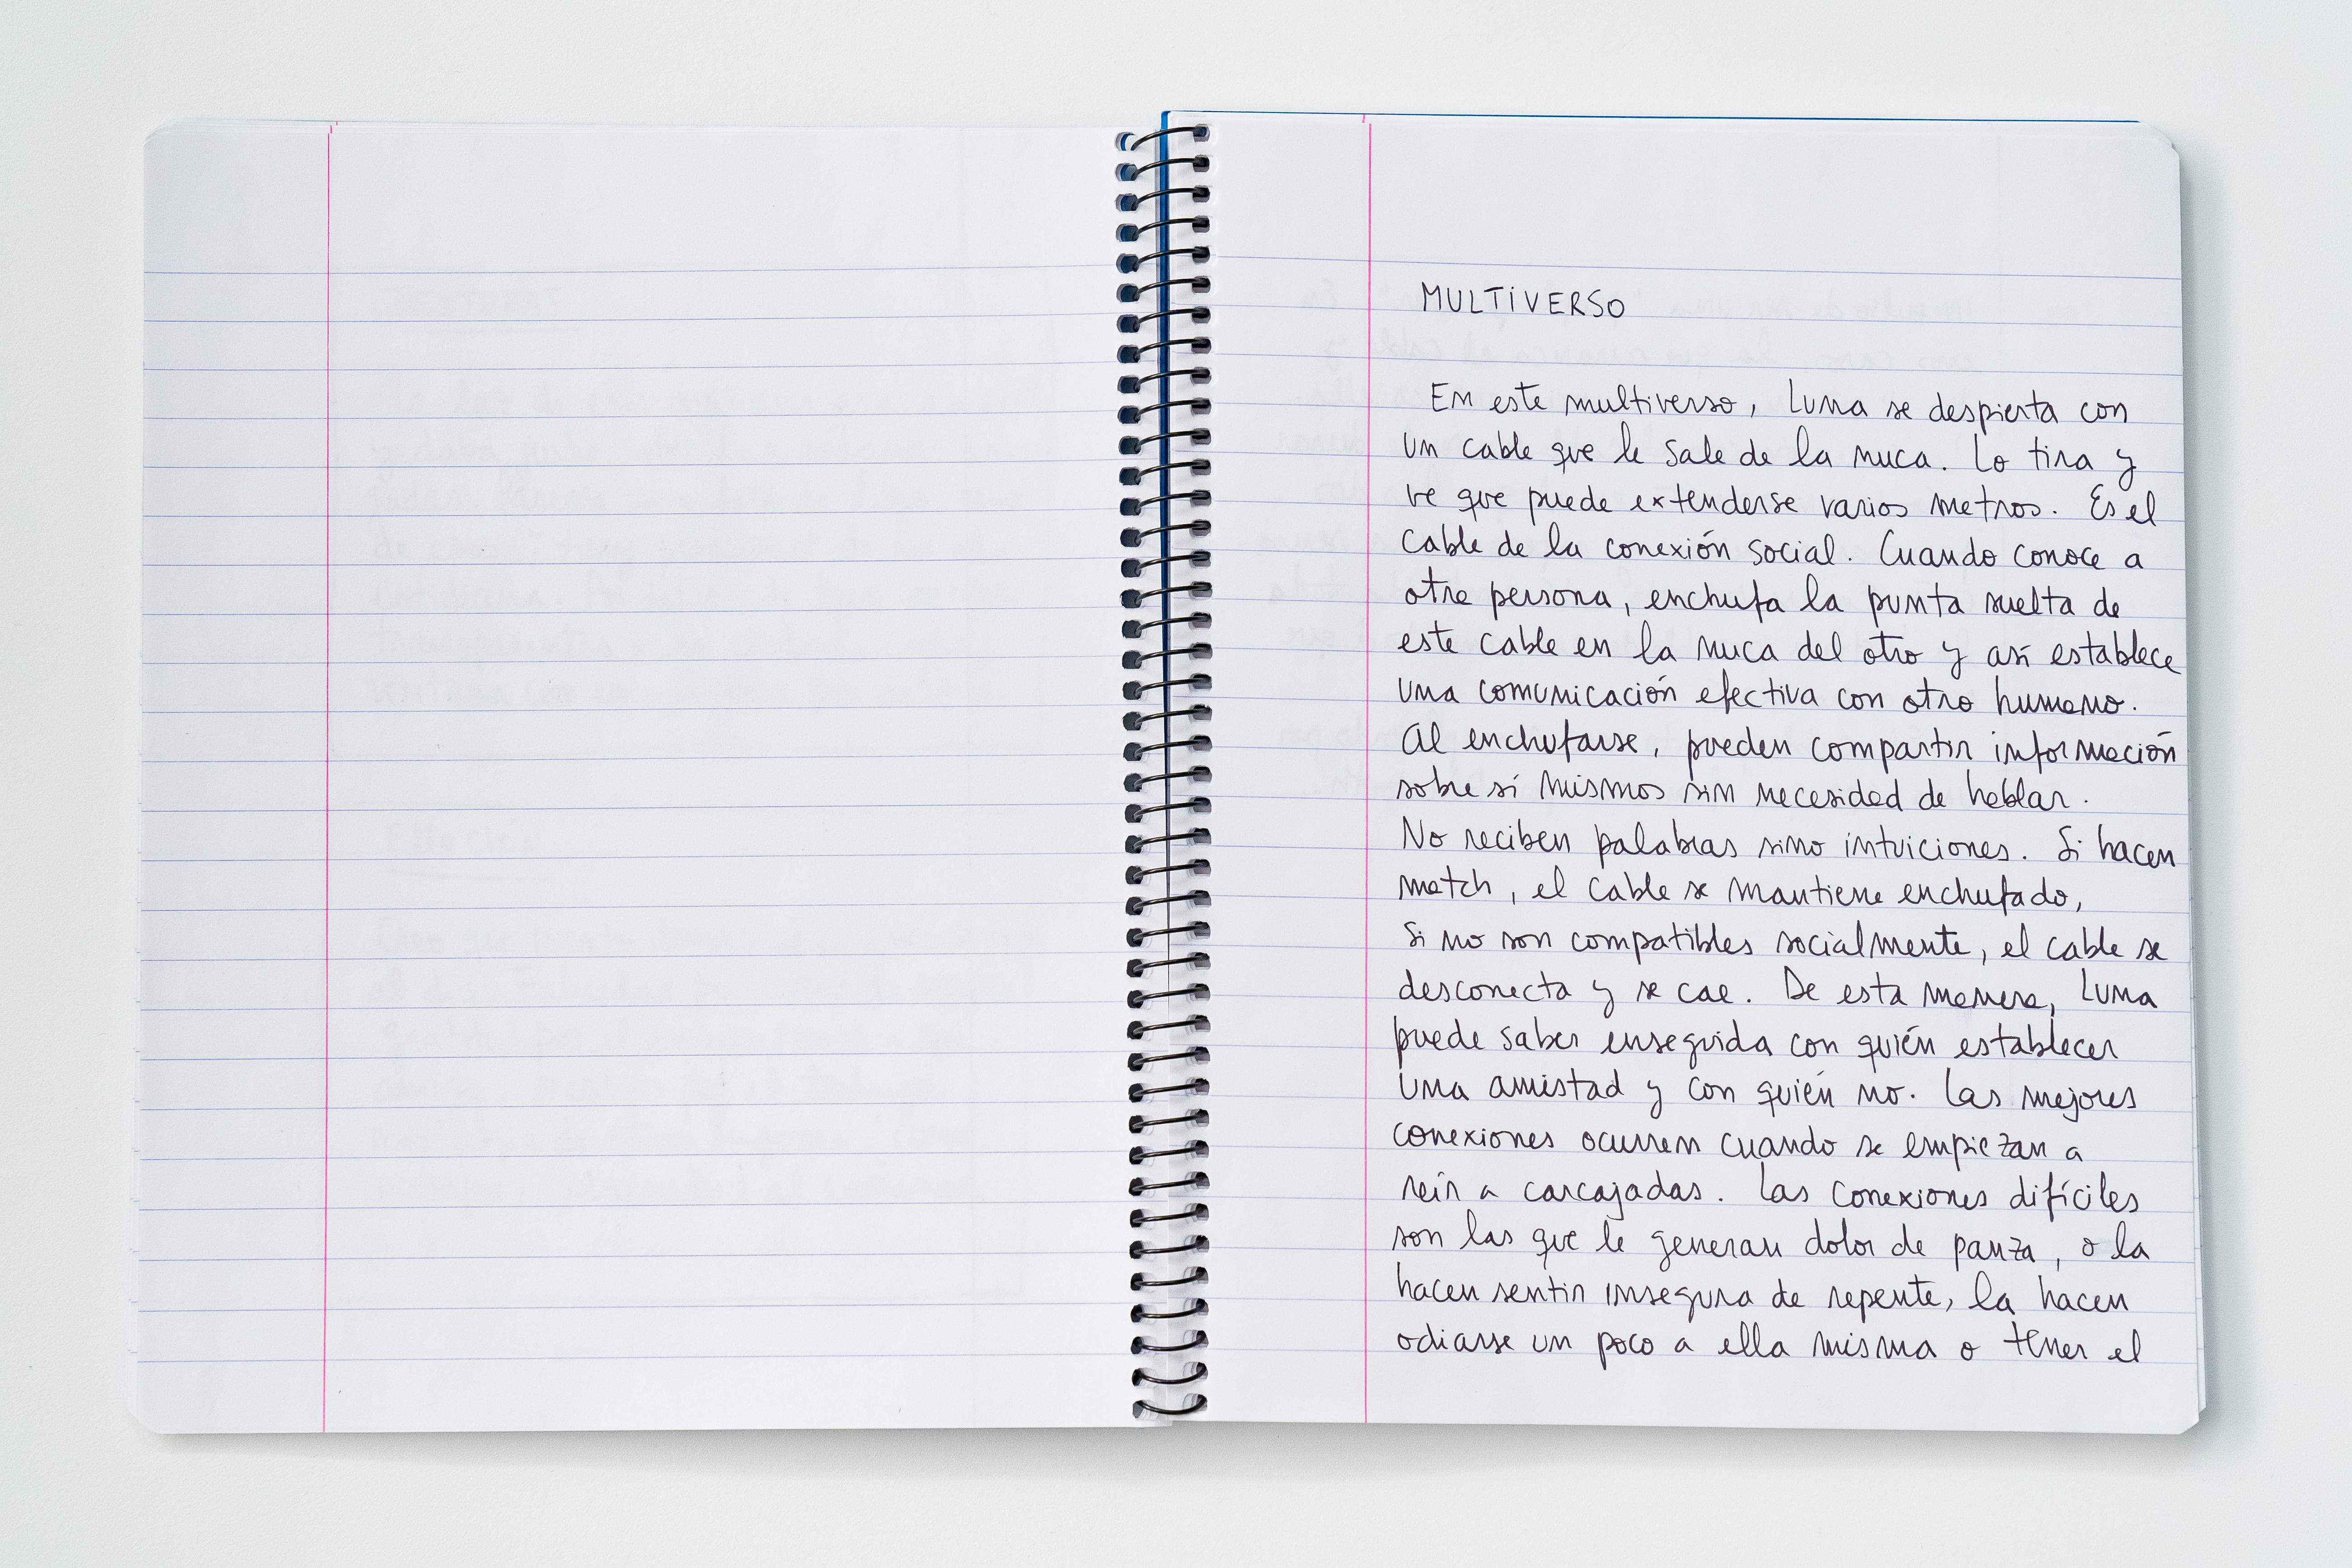 MULTIVERSO
En este multiverso, Luna se despierta con
un cable que le sale de la nuca. Lo tira y
ve que puede extenderse varios metros. Es el
cable de la conexión social. Cuando conoce a
otra persona, enchufa la punta suelta de
este cable en la nuca del otro y así establece
una comunicación efectiva con otro humano.
Al enchufarse, pueden compartir información
sobre sí mismos sin necesidad de hablar.
No reciben palabras sino intuiciones. Si hacen
match, el cable se mantiene enchufado,
Si no son compatibles socialmente, el cable se
desconecta y se cae. De esta manera, Luna
puede saber enseguida con quién establecer
una amistad y con quién no. Las mejores
conexiones ocurren cuando se empiezan a
reír a carcajadas. Las conexiones difíciles
son las que le generan dolor de panza, o la
hacen sentir insegura de repente, la hacen
odiarse un poco a ella misma o tener el